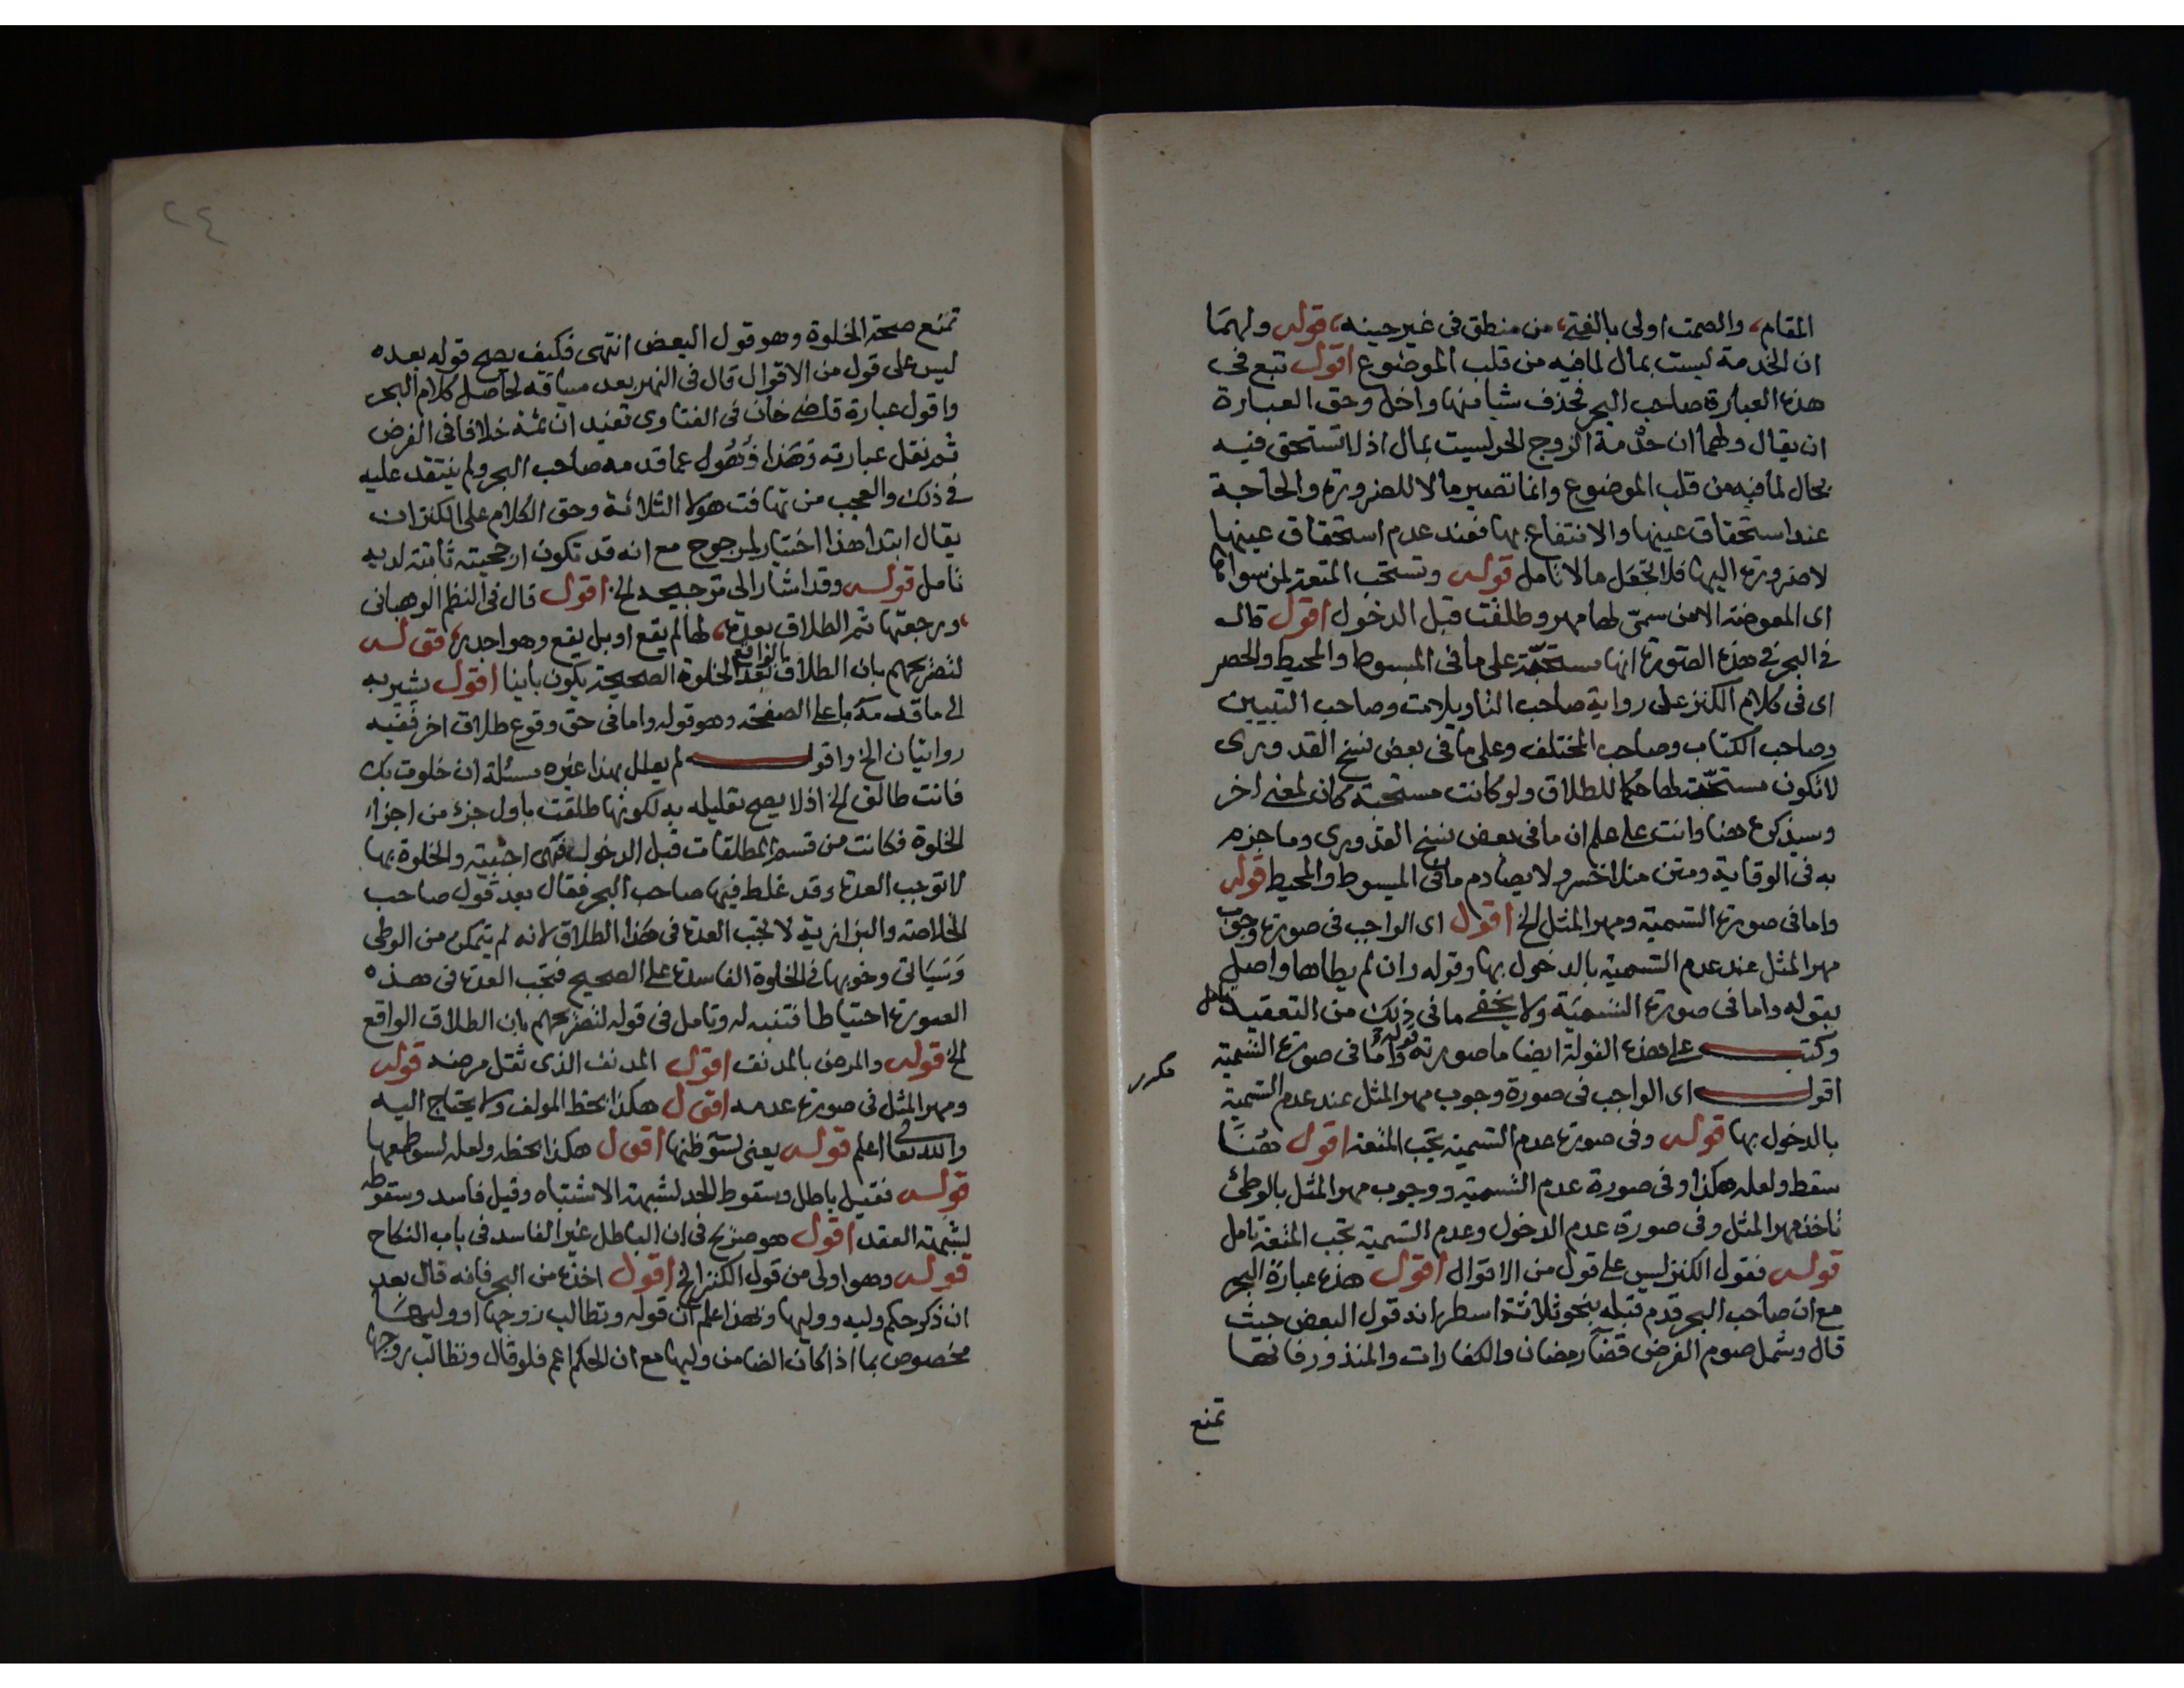 المقام، والصمت اولى بالفتى، من منطق فى غير حينه، قوله ولهما
ان الخدمة ليست بمال لما فيه من قلب الموضوع اقول تبع فى
هذه العبارة صاحب البحر فحذف شيا منها واخل وحق العبارة
ان يقال ولهما ان خدمة الزوج الحر ليست بمال اذ لا تستحق فيه
بحال لما فيه من قلب الموضوع وانما تصير مالا للضرورة والحاجة
عند استحقاق عينها والانتفاع بها فعند عدم استحقاق عينها
لا ضرورة اليها فلا تجعل مالا تامل قوله وتستحب المتعة لمن سواها
اى المعوضة الا من سمى لها مهر وطلقت قبل الدخول اقول قال
فى البحر فى هذه الصورة انها مستحبة على ما فى المبسوط والمحيط والحصر
اى فى كلام الكنز على رواية صاحب التاويلات وصاحب التيسير
وصاحب الكتاب وصاحب المختلف وعلى ما فى بعض نسخ القدورى
لا تكون مستحبة لها حكما للطلاق ولو كانت مستحبة كان لمعنى اخر
وسيذكره هنا وانت على علم ان ما فى بعض نسخ القدورى وما جزم
به فى الوقاية ومتن منلا خسرو لا يصادم ما فى المبسوط والمحيط قوله
واما فى صورة التسمية ومهر المثل الخ اقول اى الواجب فى صورة وجوب
مهر المثل عند عدم التسمية بالدخول بها وقوله وان لم يطاها واصل
بقوله واما فى صورة التسمية ولا يخفى ما فى ذلك من التعقيد تامل
وكتب على هذه القولة ايضا ما صورته قوله واما فى صورة التسمية
مكرر
اقول اى الواجب فى صورة وجوب مهر المثل عند عدم التسمية
بالدخول بها قوله وفى صورة عدم التسمية تجب المتعة اقول هنا
سقط ولعله هكذا وفى صورة عدم التسمية ووجوب مهر المثل بالوطئ
تاخذ مهر المثل وفى صورة عدم الدخول وعدم التسمية تجب المتعة تامل
قوله فقول الكنز ليس على قول من الاقوال اقول هذه عبارة البحر
مع ان صاحب البحر قدم قبله بنحو ثلاثة اسطر انه قول البعض حيث
قال وشمل صوم الفرض قضآ رمضان والكفارات والمنذور فانها
تمنع
٢٤
تمنع صحة الخلوة وهو قول البعض انتهى فكيف يصح قوله بعده
ليس على قول من الاقوال قال فى النهر بعد سياقه لحاصل كلام البحر
واقول عبارة قاضى خان فى الفتاوى تفيد ان ثمة خلافا فى الفرض
ثم نقل عبارته وهذا ذهول عما قدمه صاحب البحر ولم ينتقد عليه
فى ذلك والعجب من تهافت هولاء الثلاثة وحق الكلام على الكنز ان
يقال ابتدا هذا اختيار لمرجوح مع انه قد تكون ارجحيته ثابتة لديه
تامل قوله وقد اشار الى ترجيحه الخ اقول قال فى النظم الوهبانى
، ورجعتها ثم الطلاق بعدة، لها لم يقع او بل يقع وهو اجدر، قوله
لتصريحهم بان الطلاق الواقع بعد الخلوة الصحيحة يكون باينا اقول يشير به
الى ما قدمه باعلى الصفحة وهو قوله واما فى حق وقوع طلاق اخر ففيه
روايتان الخ واقول لم يعلل بهذا غيره مسئلة ان خلوت بك
فانت طالق الخ اذ لا يصح تعليله به لكونها طلقت باول جزء من اجزاء
الخلوة فكانت من قسم المطلقات قبل الدخول فهى اجنبية والخلوة بها
لا توجب العدة وقد غلط فيها صاحب البحر فقال بعد قول صاحب
الخلاصة والبزازية لا تجب العدة فى هذا الطلاق لانه لم يتمكن من الوطى
وسياتى وجوبها فى الخلوة الفاسدة على الصحيح فتجب العدة فى هذه
الصورة احتياطا فتنبه له وتامل فى قوله لتصريحهم بان الطلاق الواقع
الخ قوله والمرض بالمدنف اقول المدنف الذى ثقل مرضه قوله
ومهر المثل فى صورة عدمه اقول هكذا بخط المولف ولا يحتاج اليه
والله تعالى اعلم قوله يعنى اقول هكذا بخطه ولعله
قوله فقيل باطل وسقوط الحد لشبهة الاشتباه وقيل فاسد وسقوطه
لشبهة العقد اقول هو صريح فى ان الباطل غير الفاسد فى باب النكاح
قوله وهو اولى من قول الكنز الخ اقول اخذه من البحر فانه قال بعد
ان ذكر حكم وليه ووليها وبهذا علم ان قوله وتطالب زوجها او وليها
مخصوص بما اذا كان الضامن وليها مع ان الحكم اعم فلو قال وتطالب زوجها